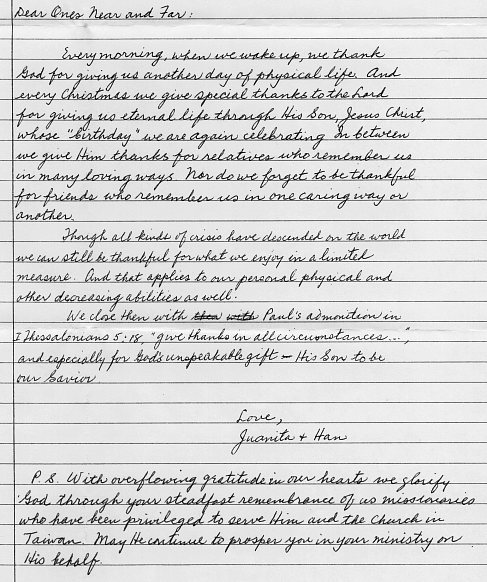 Dear Ones Near and Far:
Every morning, when we wake up, we thank
God for giving us another day of physical life. And
every Christmas we give special thanks to the Lord
for giving us eternal life through His Son, Jesus Christ,
whose "birthday" we are again celebrating. In between
we give Him thanks for relatives who remember us
in many loving ways. Nor do we forget to be thankful
for friends who remember us in one caring way or
another.
Though all kinds of crisis have descended on the world
we can still be thankful for what we enjoy in a limited
measure. And that applies to our personal physical and
other decreasing abilities as well.
We close then with Paul's admonition in
I Thessalonians 5:18, "give thanks in all circumstances...",
and especially for God's unspeakable gift - His Son to be
our Savior.
Love,
Juanita + Han
P.S. With overflowing gratitude in our hearts we glorify
God through your steadfast remembrance of us missionaries
who have been privileged to serve Him and the Church in
Taiwan. May He continue to prosper you in your ministry on
His behalf.